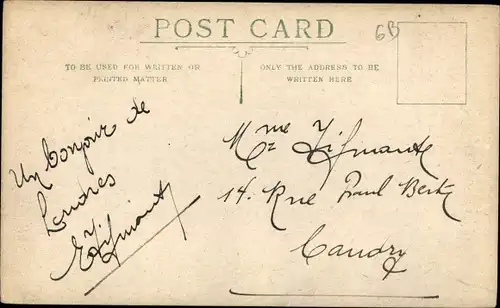 POST CARD
6B
TO BE USED FOR WRITTEN OR
PRINTED MATTER
ONLY THE ADDRESS TO BE
WRITTEN HERE
Un bonjour de
Londres
Mme
14. Rue Paul Bert
Caudry